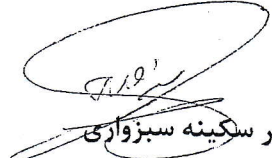 ر سکینه سبزواری